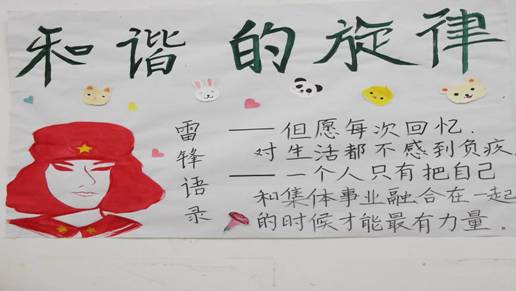 和谐的旋律
雷锋语录
——但愿每次回忆.
对生活都不感到负疚.
——一个人只有把自己
和集体事业融合在一起
的时候才能最有力量.